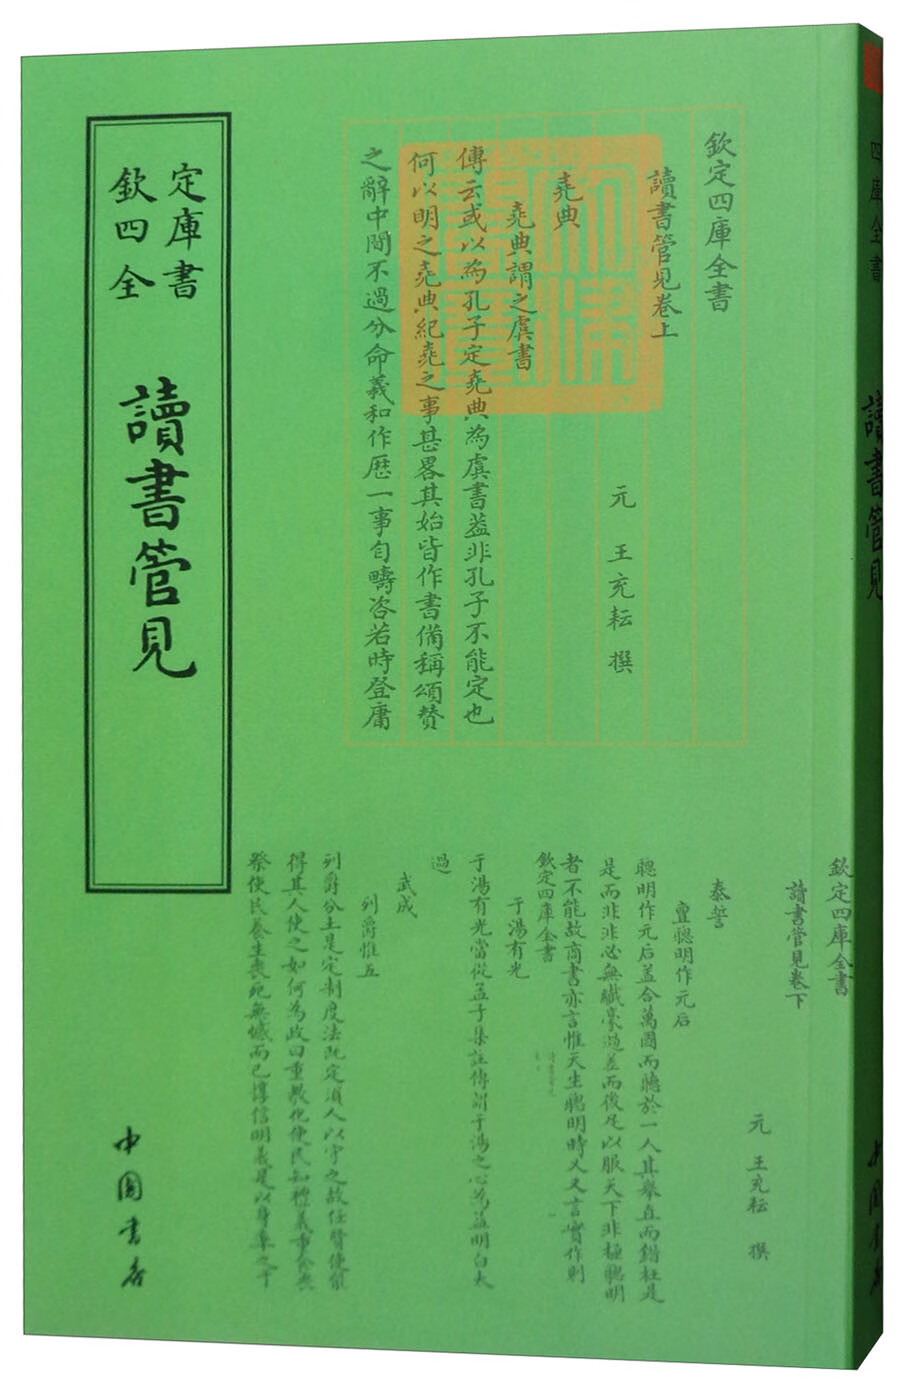 欽定
四庫
全書
讀書管見
中國書店
欽定四庫全書
讀書管見卷上
元 王充耘 撰
堯典
堯典謂之虞書
傳云或以為孔子定堯典為虞書蓋非孔子不能定也
何以明之堯典紀堯之事甚畧其始皆作書備稱頌贊
之辭中間不過分命羲和作厯一事自疇咨若時登庸
欽定四庫全書
讀書管見卷下
元 王充耘 撰
泰誓
亶聰明作元后
聰明作元后蓋合萬國而聽於一人其舉直而錯枉是
是而非非必無纎毫過差而後足以服天下非極聰明
者不能故商書亦言惟天生聰明時乂又言實作則
欽定四庫全書
于湯有光
于湯有光當從孟子集註傳謂于湯之心為益明白大
過
武成
列爵惟五
列爵分土是定制度法既定須人以守之故任賢使能
得其人使之如何為政曰重教化使民知禮義重食喪
祭使民養生喪死無憾而已惇信明義是以身率之于
四庫全書
讀書管見
中國書店